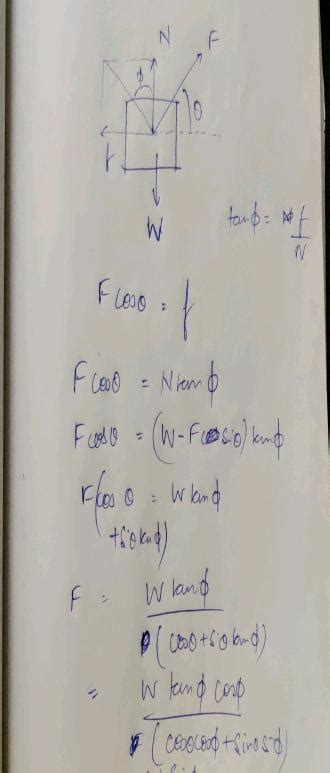 N F
φ
θ
f
W
tanφ = f/N
F cosθ = f
F cosθ = N tanφ
F cosθ = (W - F sinθ) tanφ
F(cosθ = W tanφ
+ sinθ tanφ)
F = W tanφ
(cosθ + sinθ tanφ)
= W tanφ cosφ
(cosθcosφ + sinθ sinφ)